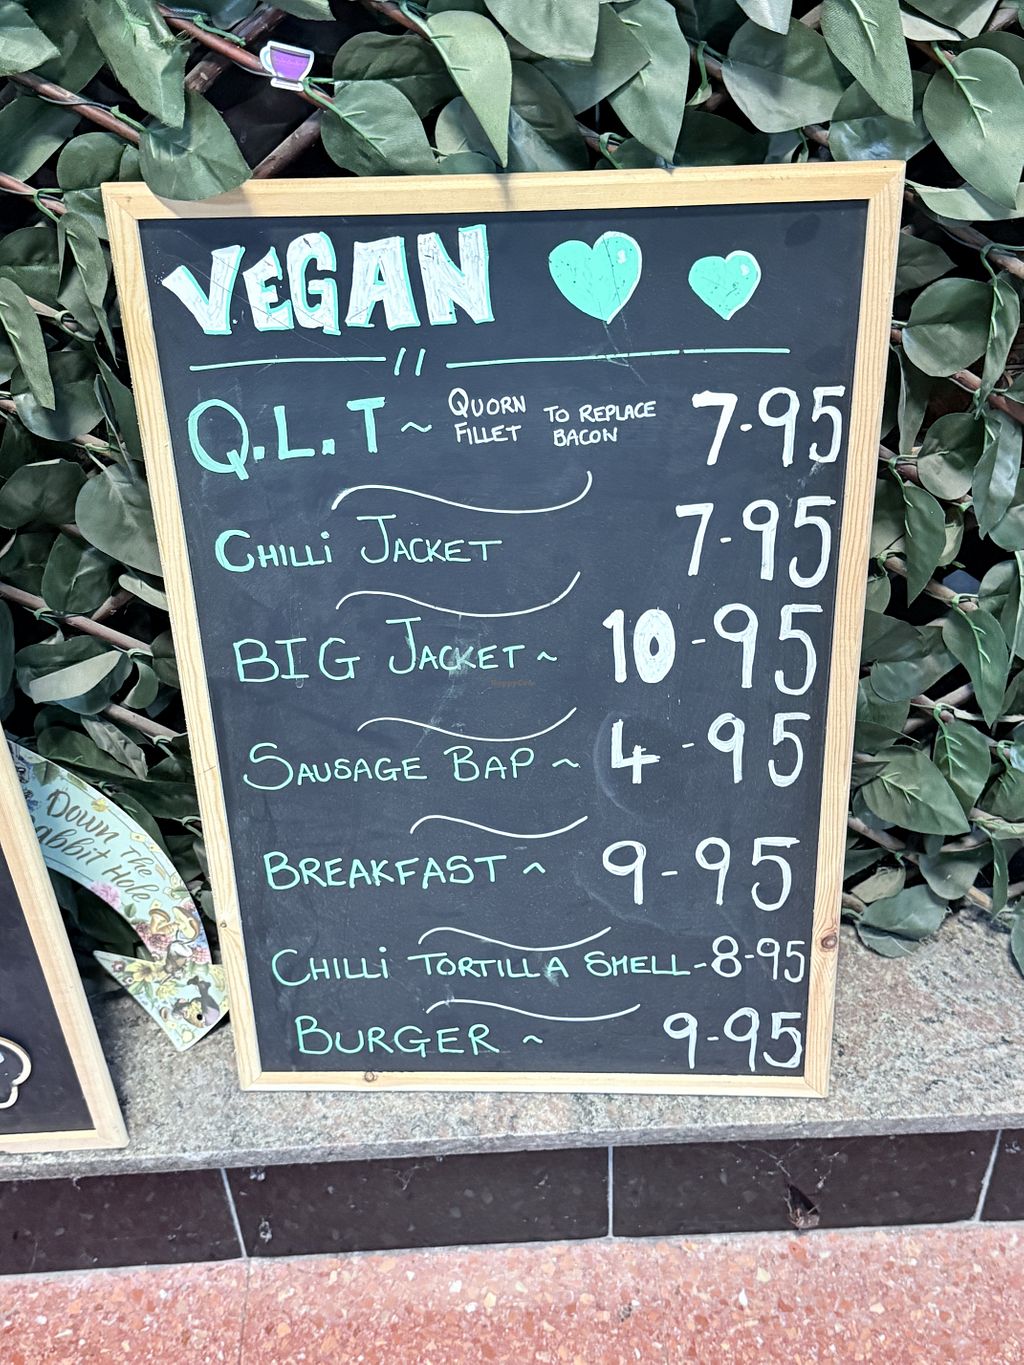 VEGAN
Q.L.T ~ QUORN FILLET TO REPLACE BACON 7-95
CHILLi JACKET 7-95
BIG JACKET ~ 10-95
SAUSAGE BAP ~ 4-95
BREAKFAST ~ 9-95
CHILLi TORTILLA SHELL - 8-95
BURGER ~ 9-95
Down The
Rabbit Hole